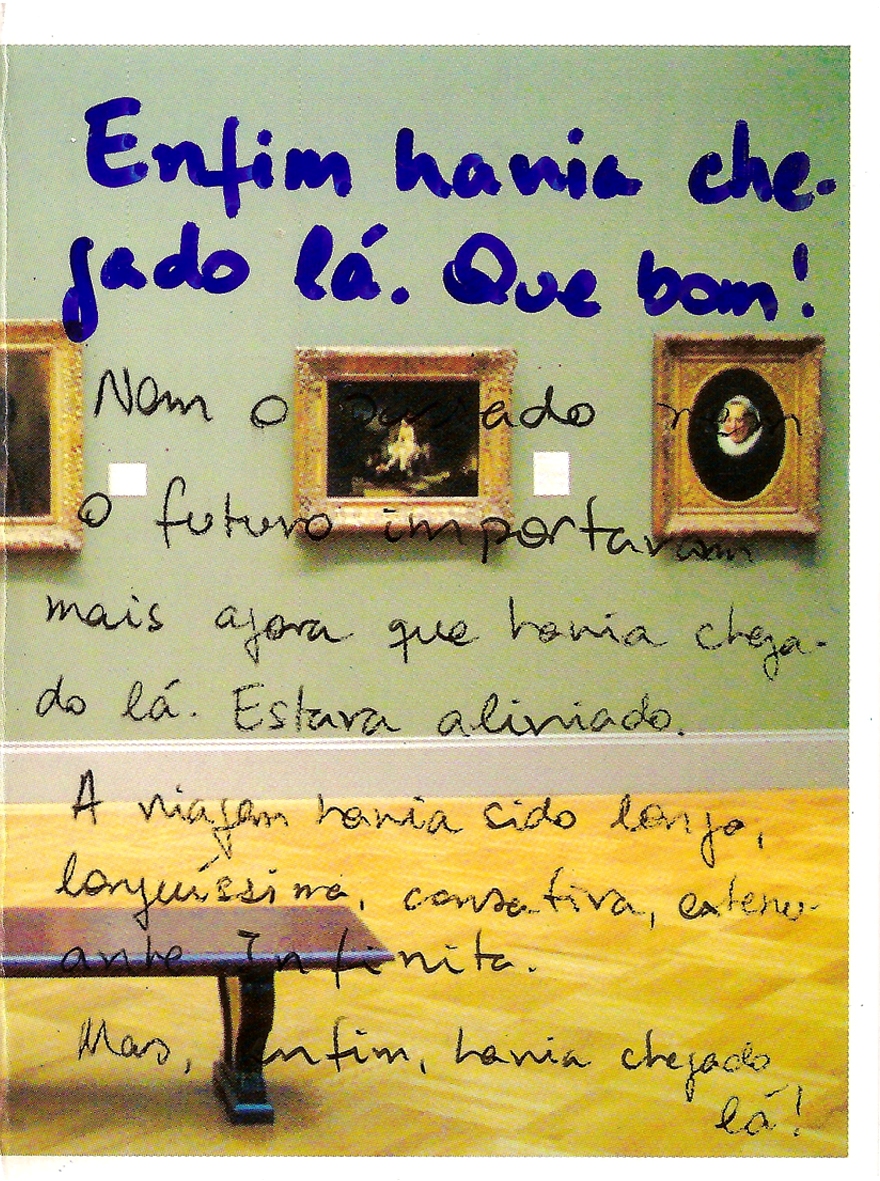 Enfim havia che-
gado lá. Que bom!
Nem o passado nem
o futuro importavam
mais agora que havia chega-
do lá. Estava aliviado.
A viagem havia sido longa,
longuíssima, cansativa, extenu-
ante. Infinita.
Mas, enfim, havia chegado
lá!